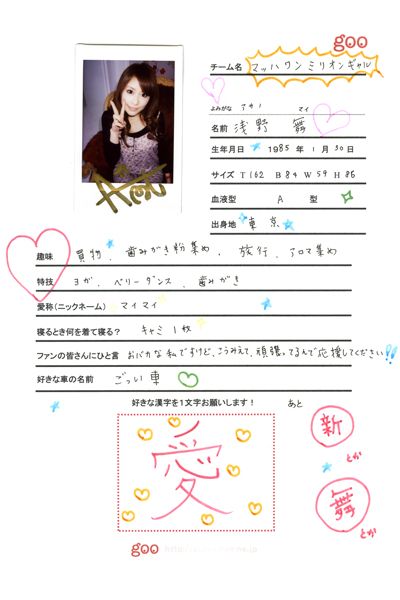 goo
チーム名 マッハワンミリオンギャル
よみがな アサノ マイ
名前 浅野 舞
生年月日 1985年1月30日
サイズ T162 B84 W59 H86
血液型 A 型
出身地 東京
趣味 買物、歯みがき粉集め、旅行、アロマ集め
特技 ヨガ、ベリーダンス、歯みがき
愛称(ニックネーム) マイマイ
寝るとき何を着て寝る? キャミ1枚
ファンの皆さんにひと言 おバカな私ですけど、こうみえて、頑張ってるんで応援してください!!
好きな車の名前 ごつい車
好きな漢字を1文字お願いします!
あと
愛
新
とか
舞
とか
goo